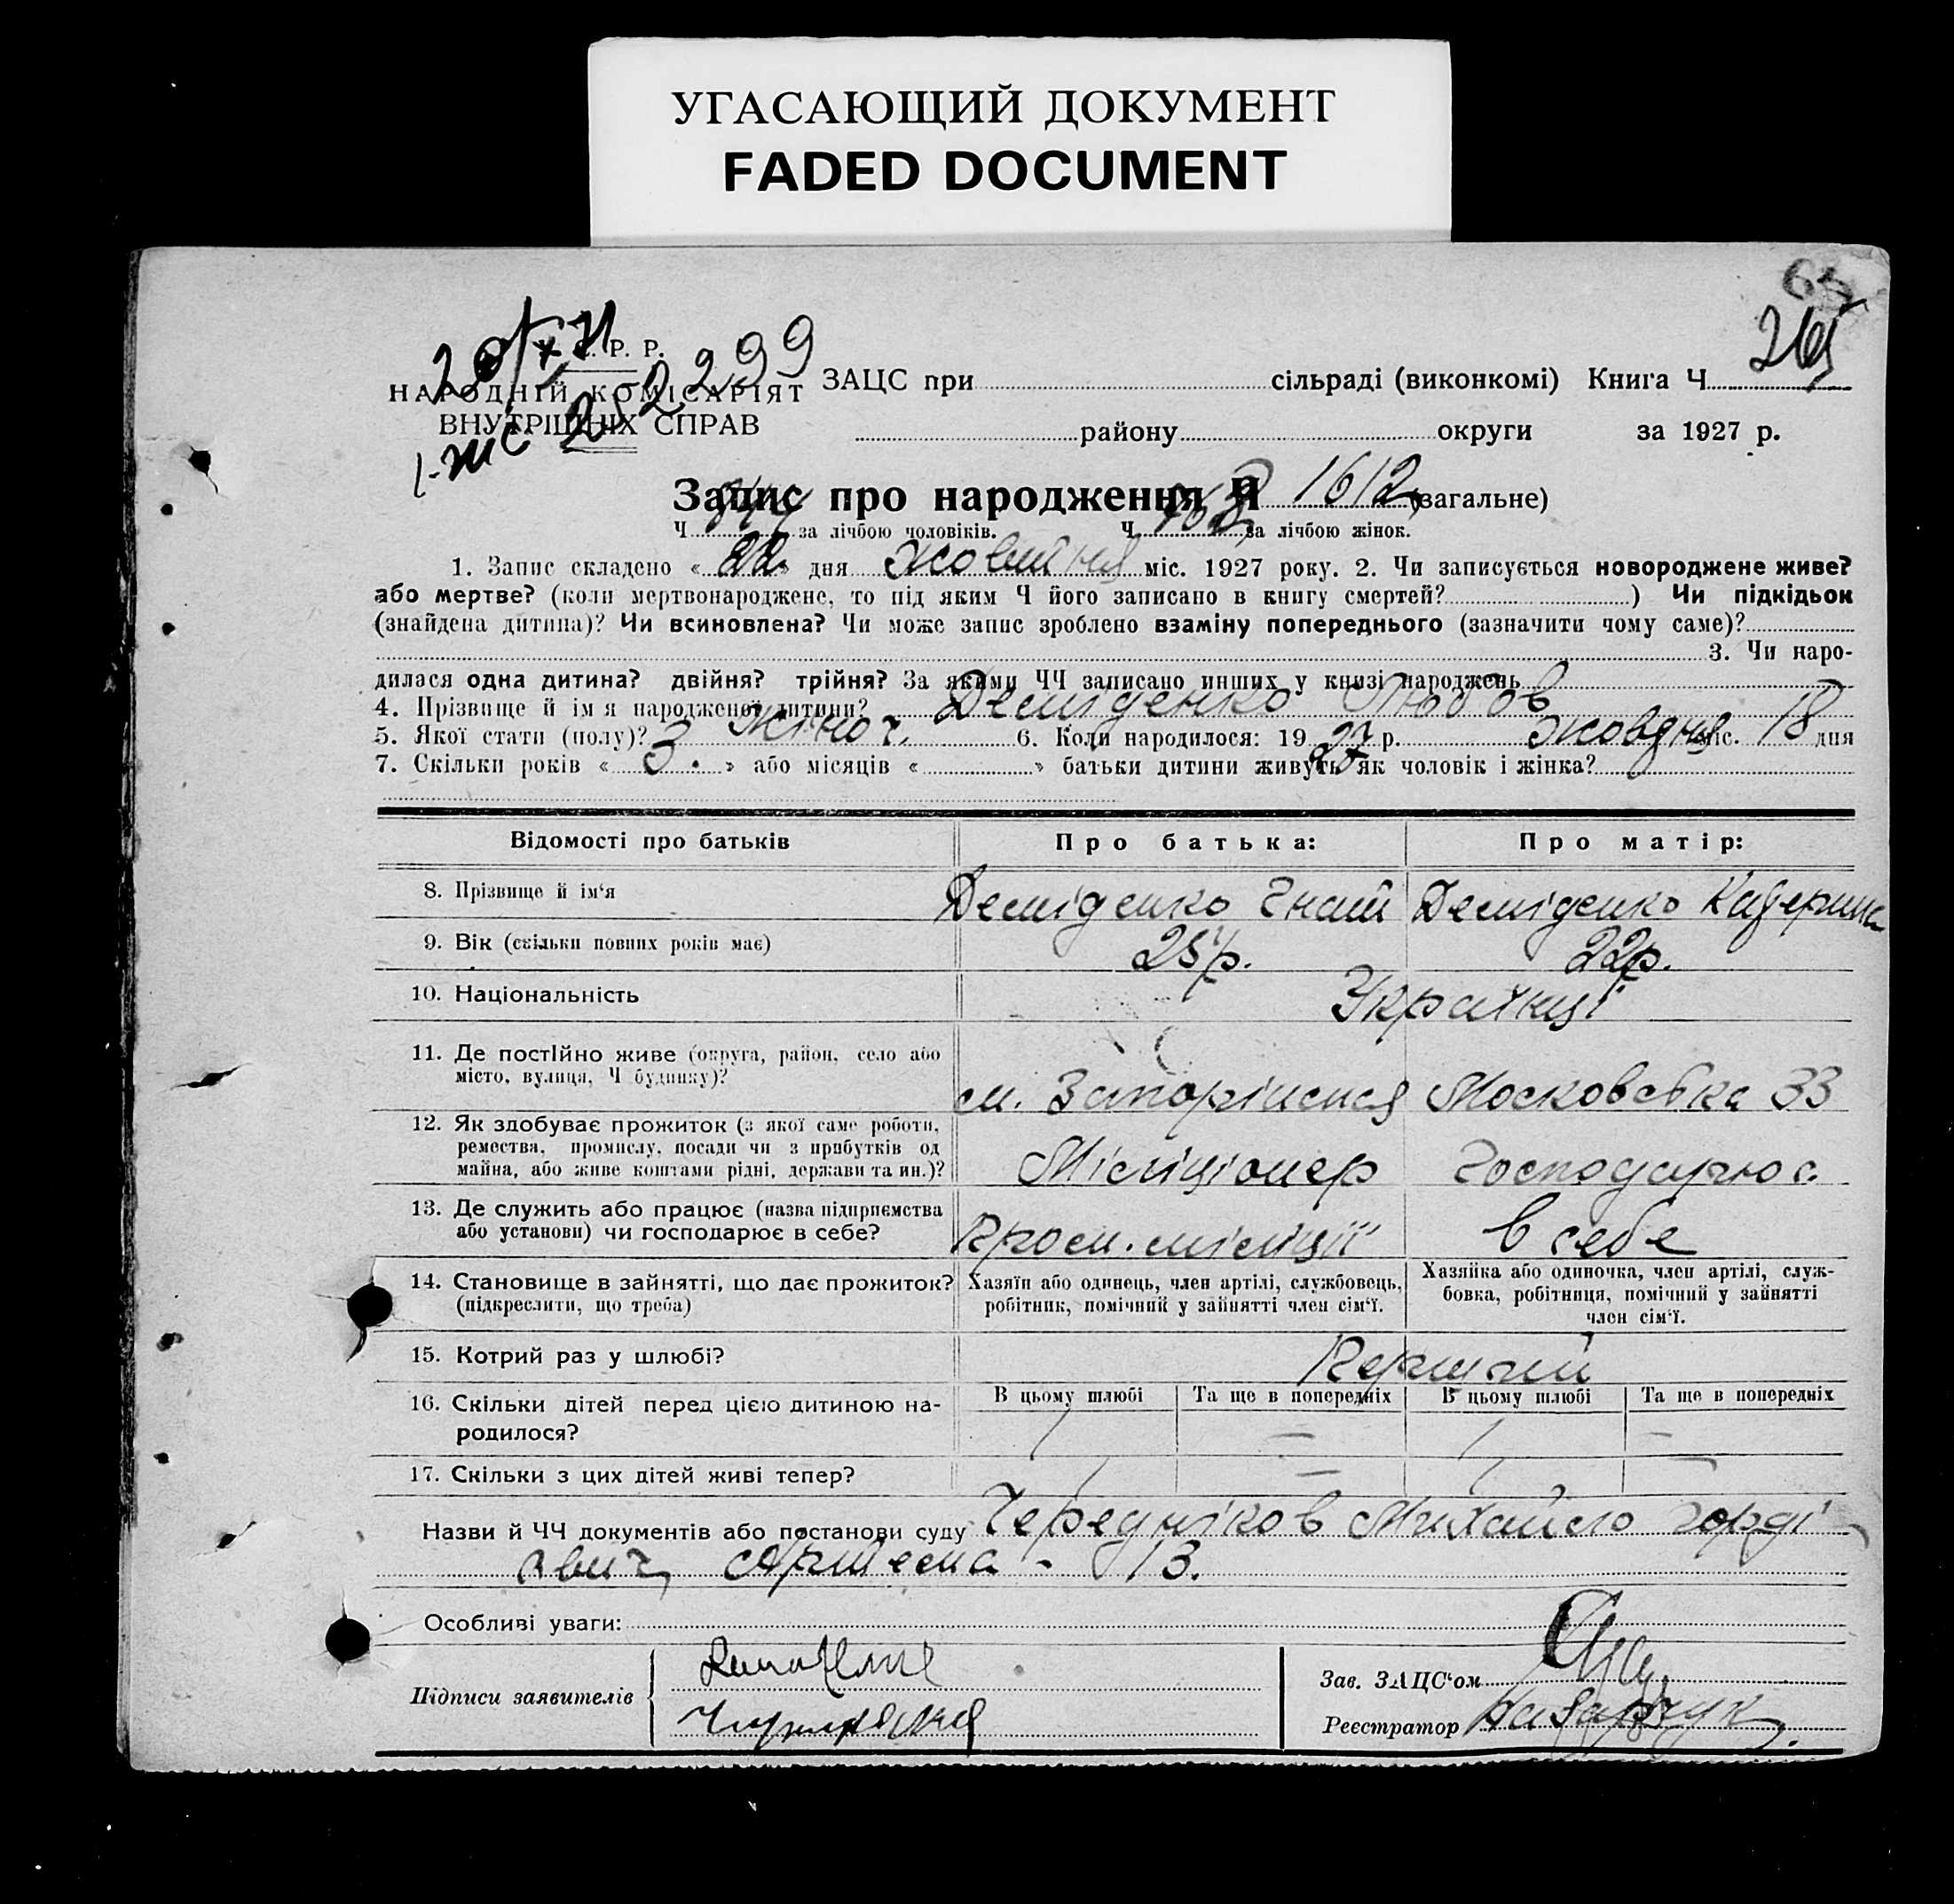 УГАСАЮЩИЙ ДОКУМЕНТ
FADED DOCUMENT
65
265
252299
У. С. Р. Р.
НАРОДНІЙ КОМІСАРІЯТ
ВНУТРІШНІХ СПРАВ
ЗАЦС при сільраді (виконкомі) Книга Ч
району округи за 1927 р.
Запис про народження Ч 1612 (загальне)
Ч за лічбою чоловіків. Ч 768 за лічбою жінок.
1. Запис складено « 22 » дня жовтня міс. 1927 року. 2. Чи записується новороджене живе?
або мертве? (коли мертвонароджене, то під яким Ч його записано в книгу смертей? ) Чи підкідьок
(знайдена дитина)? Чи всиновлена? Чи може запис зроблено взаміну попереднього (зазначити чому саме)?
3. Чи наро-
дилася одна дитина? двійня? трійня? За якими ЧЧ записано инших у книзі народжень
4. Прізвище й ім'я народженої дитини? Деміденко Любов
5. Якої стати (полу)? жіноч. 6. Коли народилося: 19 27 р. жовдня міс. 18 дня
7. Скільки років « 3. » або місяців « » батьки дитини живуть як чоловік і жінка?
Відомості про батьків Про батька: Про матір:
8. Прізвище й ім'я Деміденко Гнат Деміденко Кадерина
9. Вік (скільки повних років має) 25 р. 22 р.
10. Національність Українці
11. Де постійно живе (округа, район, село або
місто, вулиця, Ч будинку)?
м. Запоріжжя Московська 33
12. Як здобуває прожиток (з якої саме роботи,
ремества, промислу, посади чи з прибутків од
майна, або живе коштами рідні, держави та ин.)?
Міліціонер Господарює
13. Де служить або працює (назва підприємства
або установи) чи господарює в себе?
Пром. міліції в себе
14. Становище в зайнятті, що дає прожиток?
(підкреслити, що треба)
Хазяїн або одинець, член артілі, службовець,
робітник, помічний у зайнятті член сім'ї.
Хазяйка або одиночка, член артілі, служ-
бовка, робітниця, помічний у зайнятті
член сім'ї.
15. Котрий раз у шлюбі? Перший
16. Скільки дітей перед цією дитиною на-
родилося?
В цьому шлюбі Та ще в попередніх В цьому шлюбі Та ще в попередніх
1 — 1 —
17. Скільки з цих дітей живі тепер? 1 — 1 —
Назви й ЧЧ документів або постанови суду Чередніков Михайло Горді
євич, Артема - 13.
Особливі уваги:
Підписи заявителів
Зав. ЗАЦС'ом
Реєстратор Назарчук